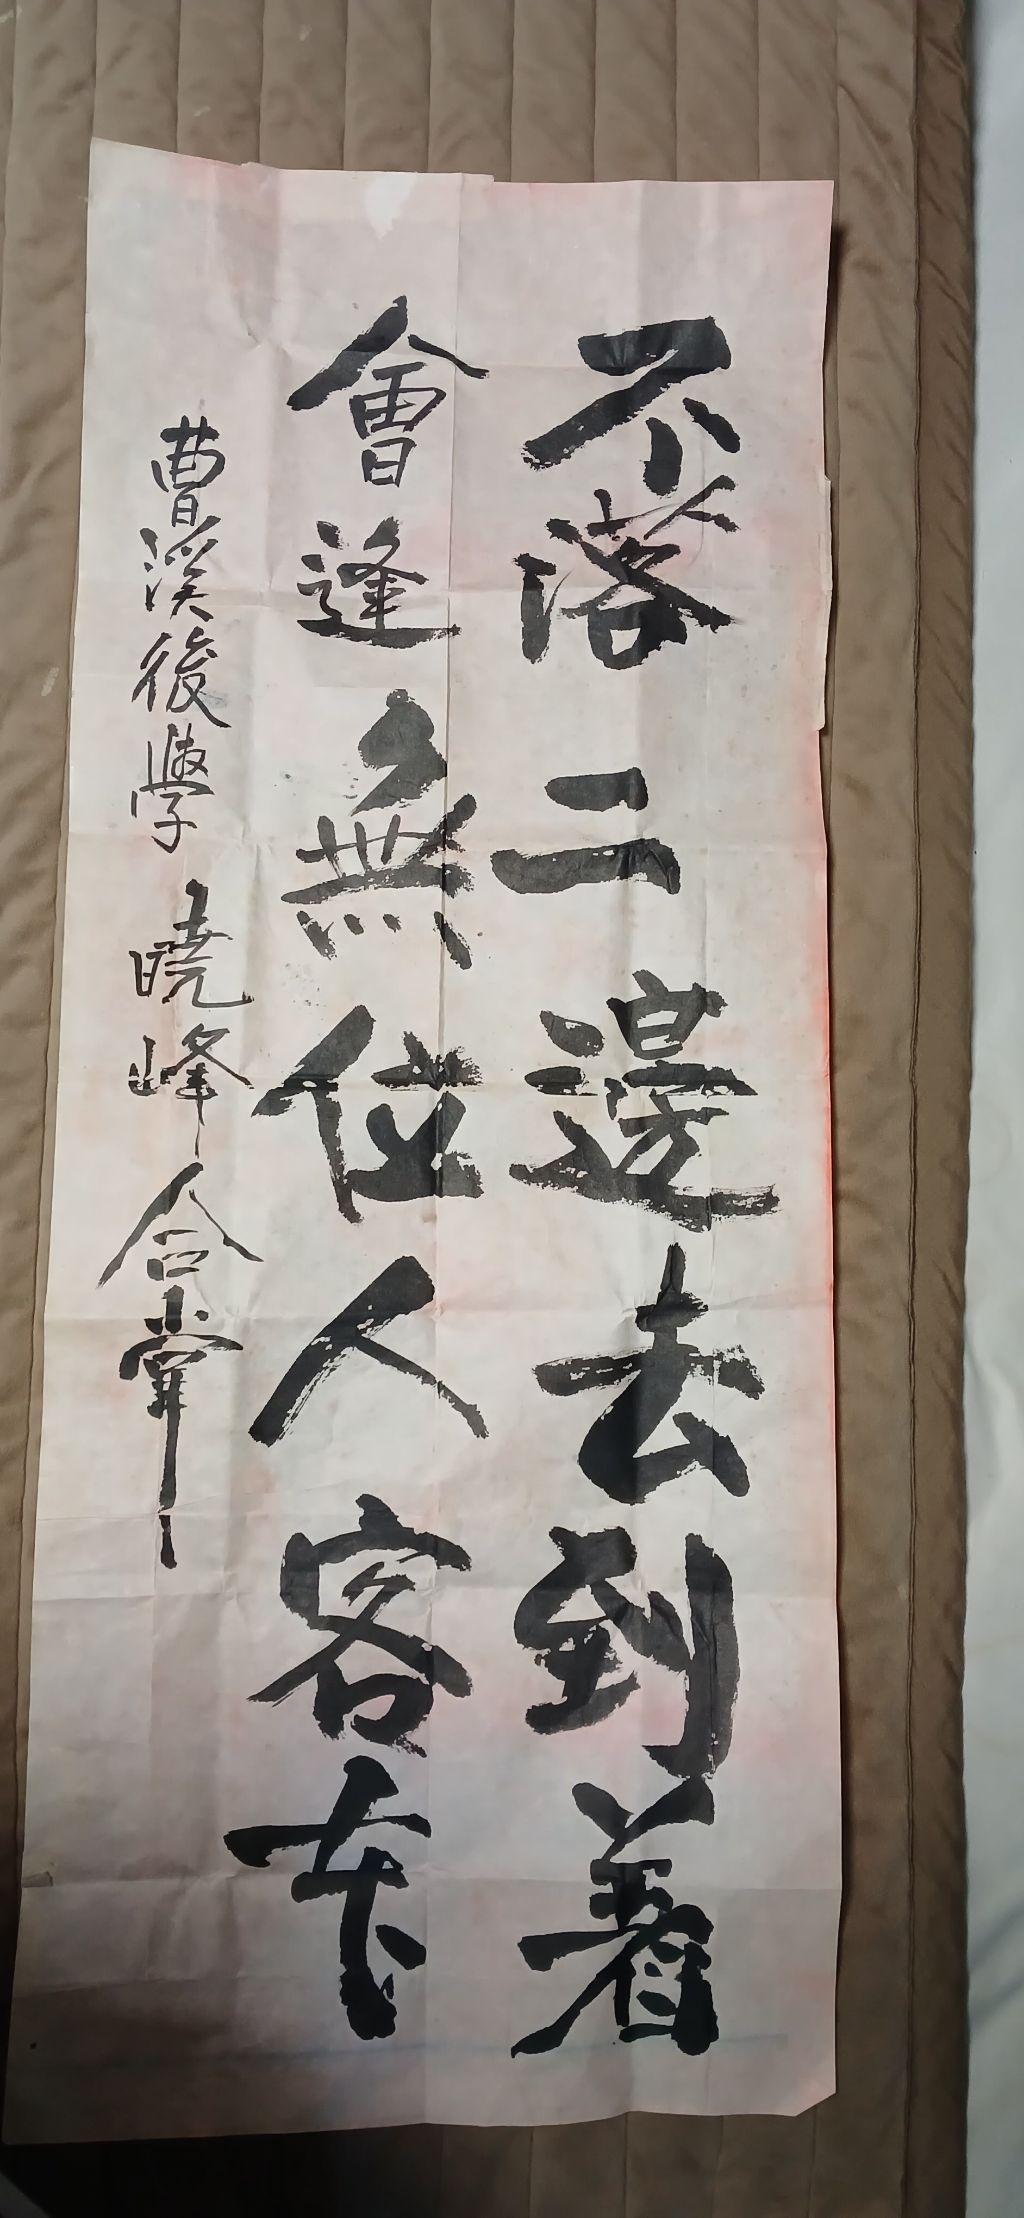 不落二邊去到着
會逢無位人客下
曹溪後學 曉峰 合掌